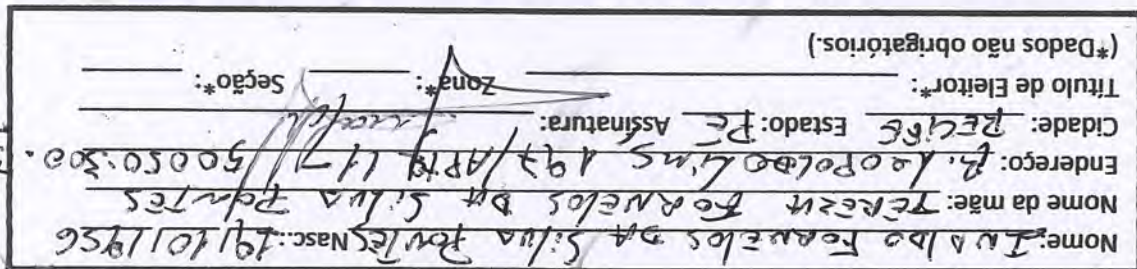 Nome: INALDO FORNELOS DA SILVA PONTES Nasc.: 19/10/1956
Nome da mãe: TEREZA FORNELOS DA SILVA PONTES
Endereço: R. LEOPOLDO LINS 197/APTO 117/ 50050.300.
Cidade: RECIFE Estado: PE Assinatura:
Título de Eleitor*: Zona*: Seção*:
(*Dados não obrigatórios.)